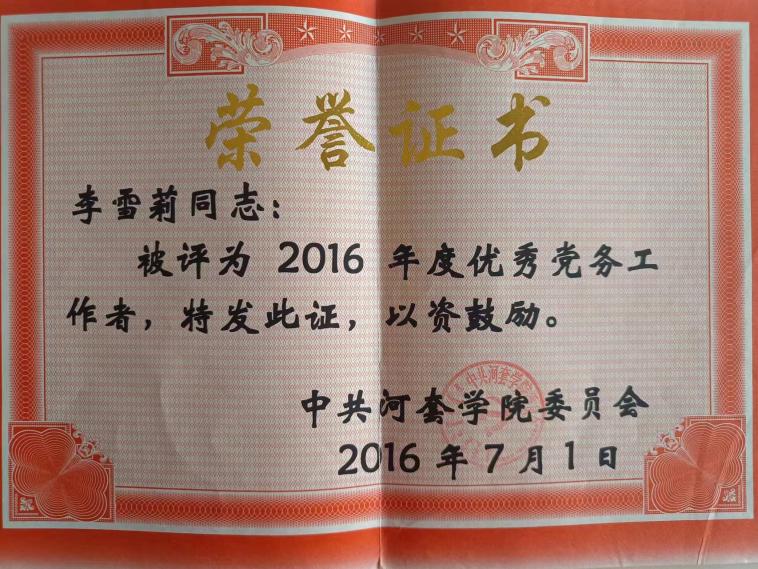 荣誉证书
李雪莉同志：
被评为 2016 年度优秀党务工
作者，特发此证，以资鼓励。
中共河套学院
中共河套学院委员会
2016 年 7 月 1 日